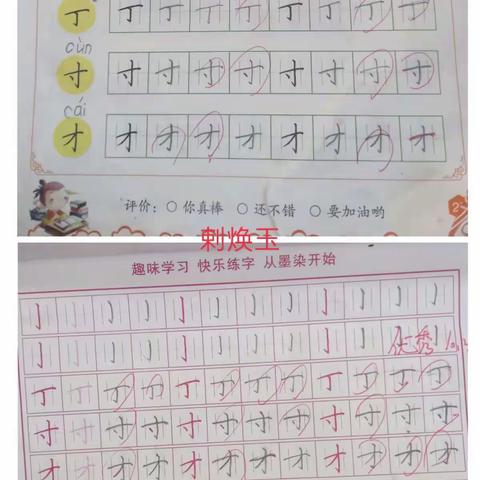 丁 丁 丁 丁 丁 丁 丁 丁 丁
cùn
寸 寸 寸 寸 寸 寸 寸 寸 寸
cái
才 才 才 才 才 才 才 才 才
评价: ○ 你真棒 ○ 还不错 ○ 要加油哟
刺焕玉
趣味学习 快乐练字 从墨染开始
亅 亅 亅 亅 亅 亅 亅 亅 亅 亅 亅 亅
亅 亅 亅 亅 亅 亅 亅 亅 亅 亅 亅 亅
优秀
丁 丁 丁 丁 丁 丁 丁 丁 丁 丁 丁 丁
寸 寸 寸 寸 寸 寸 寸 寸 寸 寸 寸 寸
才 才 才 才 才 才 才 才 才 才 才 才